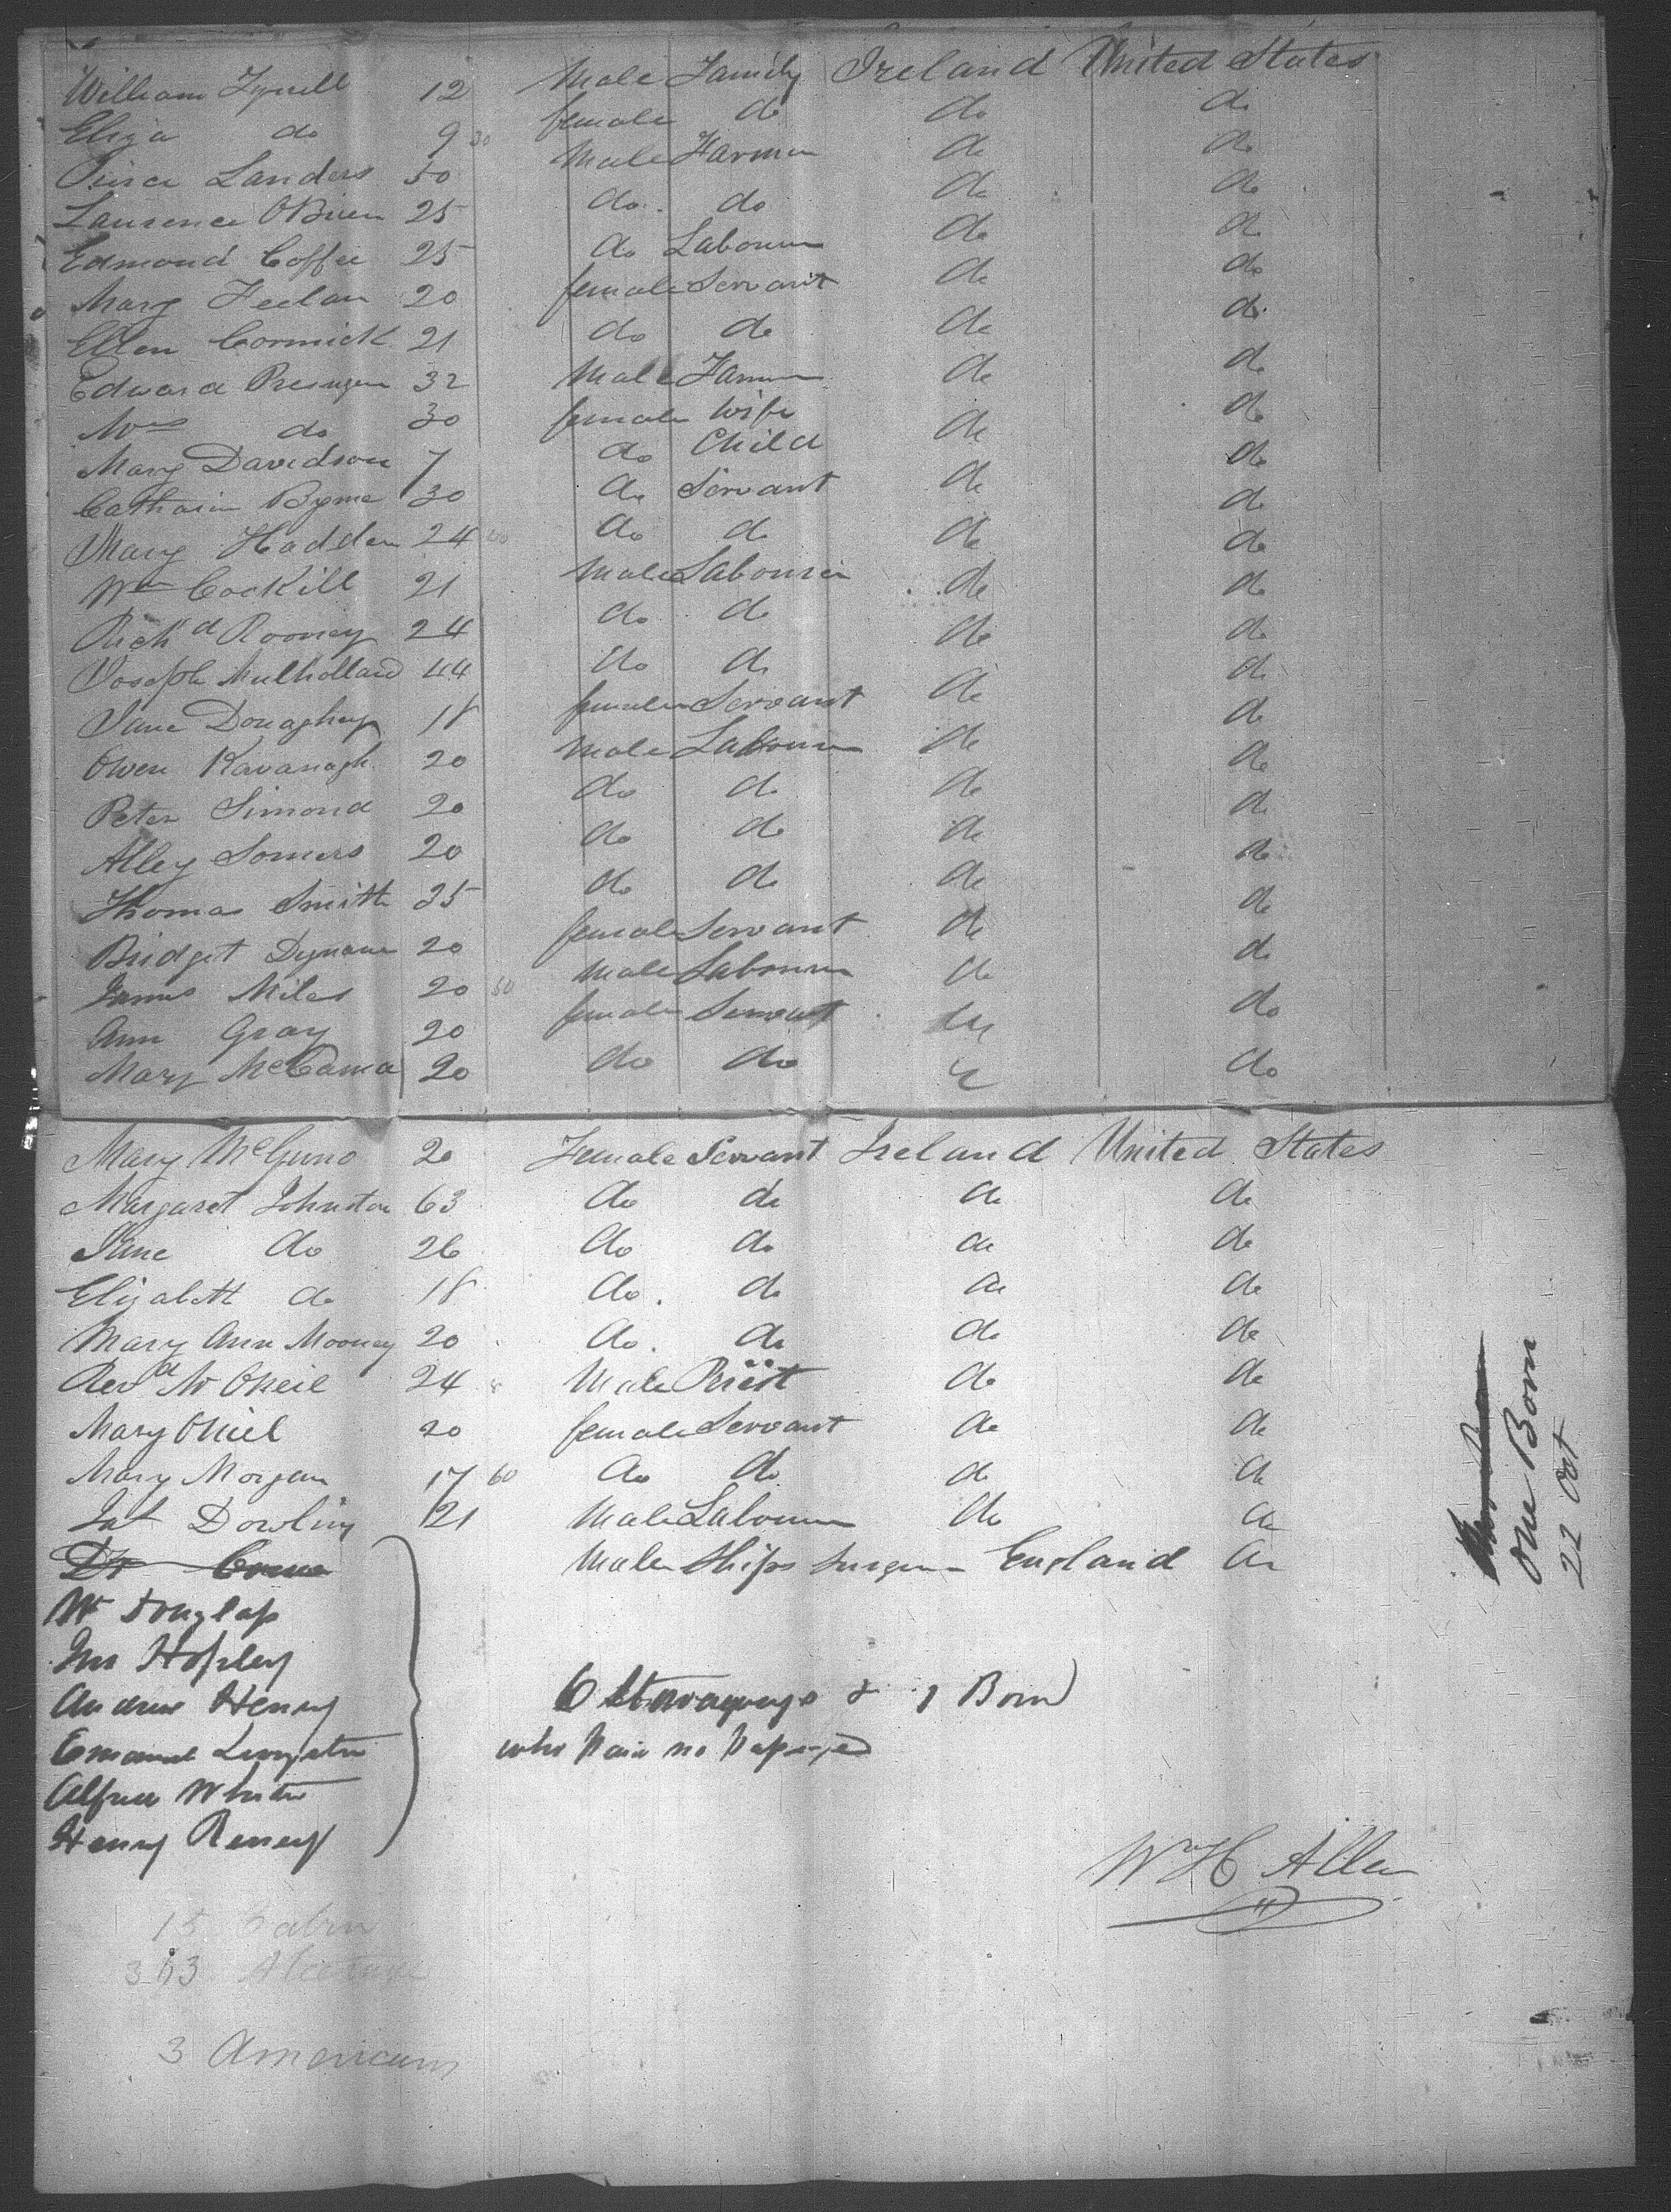 William Tyrell 12 Male Family Ireland United States
Eliza do 9 30 female do do do
Pierce Landers 50 Male Farmer do do
Laurence OBrien 25 do do do do
Edmond Coffee 25 do Labourer do do
Mary Feelan 20 female Servant do do
Ellen Cormick 21 do do do do
Edward 32 Male Farmer do do
Mrs do 30 female Wife do do
Mary Davidson 7 do Child do
Catharine Byrne 30 do Servant do do
Mary Hadden 24 40 do do do do
Wm Cockill 21 Male Labourer do do
Rich'd Rooney 24 do do do do
Joseph Mulholland 44 do do do do
Jane Donaghey 18 female Servant do do
Owen Kavanagh 20 Male Labourer do do
Peter Simond 20 do do do do
Alley Somers 20 do do do do
Thomas Smith 35 do do do do
Bridget 20 female Servant do do
James Miles 20 50 Male Labourer do do
Ann Gray 20 female Servant do do
Mary McCama 20 do do do
Mary McGuno 20 Female Servant Ireland United States
Margaret Johnston 63 do do do do
Jane do 26 do do do do
Elizabeth do 18 do do do do
Mary Ann Mooney 20 do do do do
Revd Mr ONeil 24 Male Priest do do
Mary ONiel 20 female Servant do do
Mary Morgan 17 60 do do do do
Pat Dowling 21 Male Labourer do do
Dr Male Ships Surgeon England do
Wm Douglass
Jno Hopley
Andrew Henry
Emanuel Livingston
Alfred White
Henry Reney
6 Stowaways & 1 Born
who have no
Wm H Allen
15 Cabin
363 Steerage
3 Americans
One Born
22 Oct